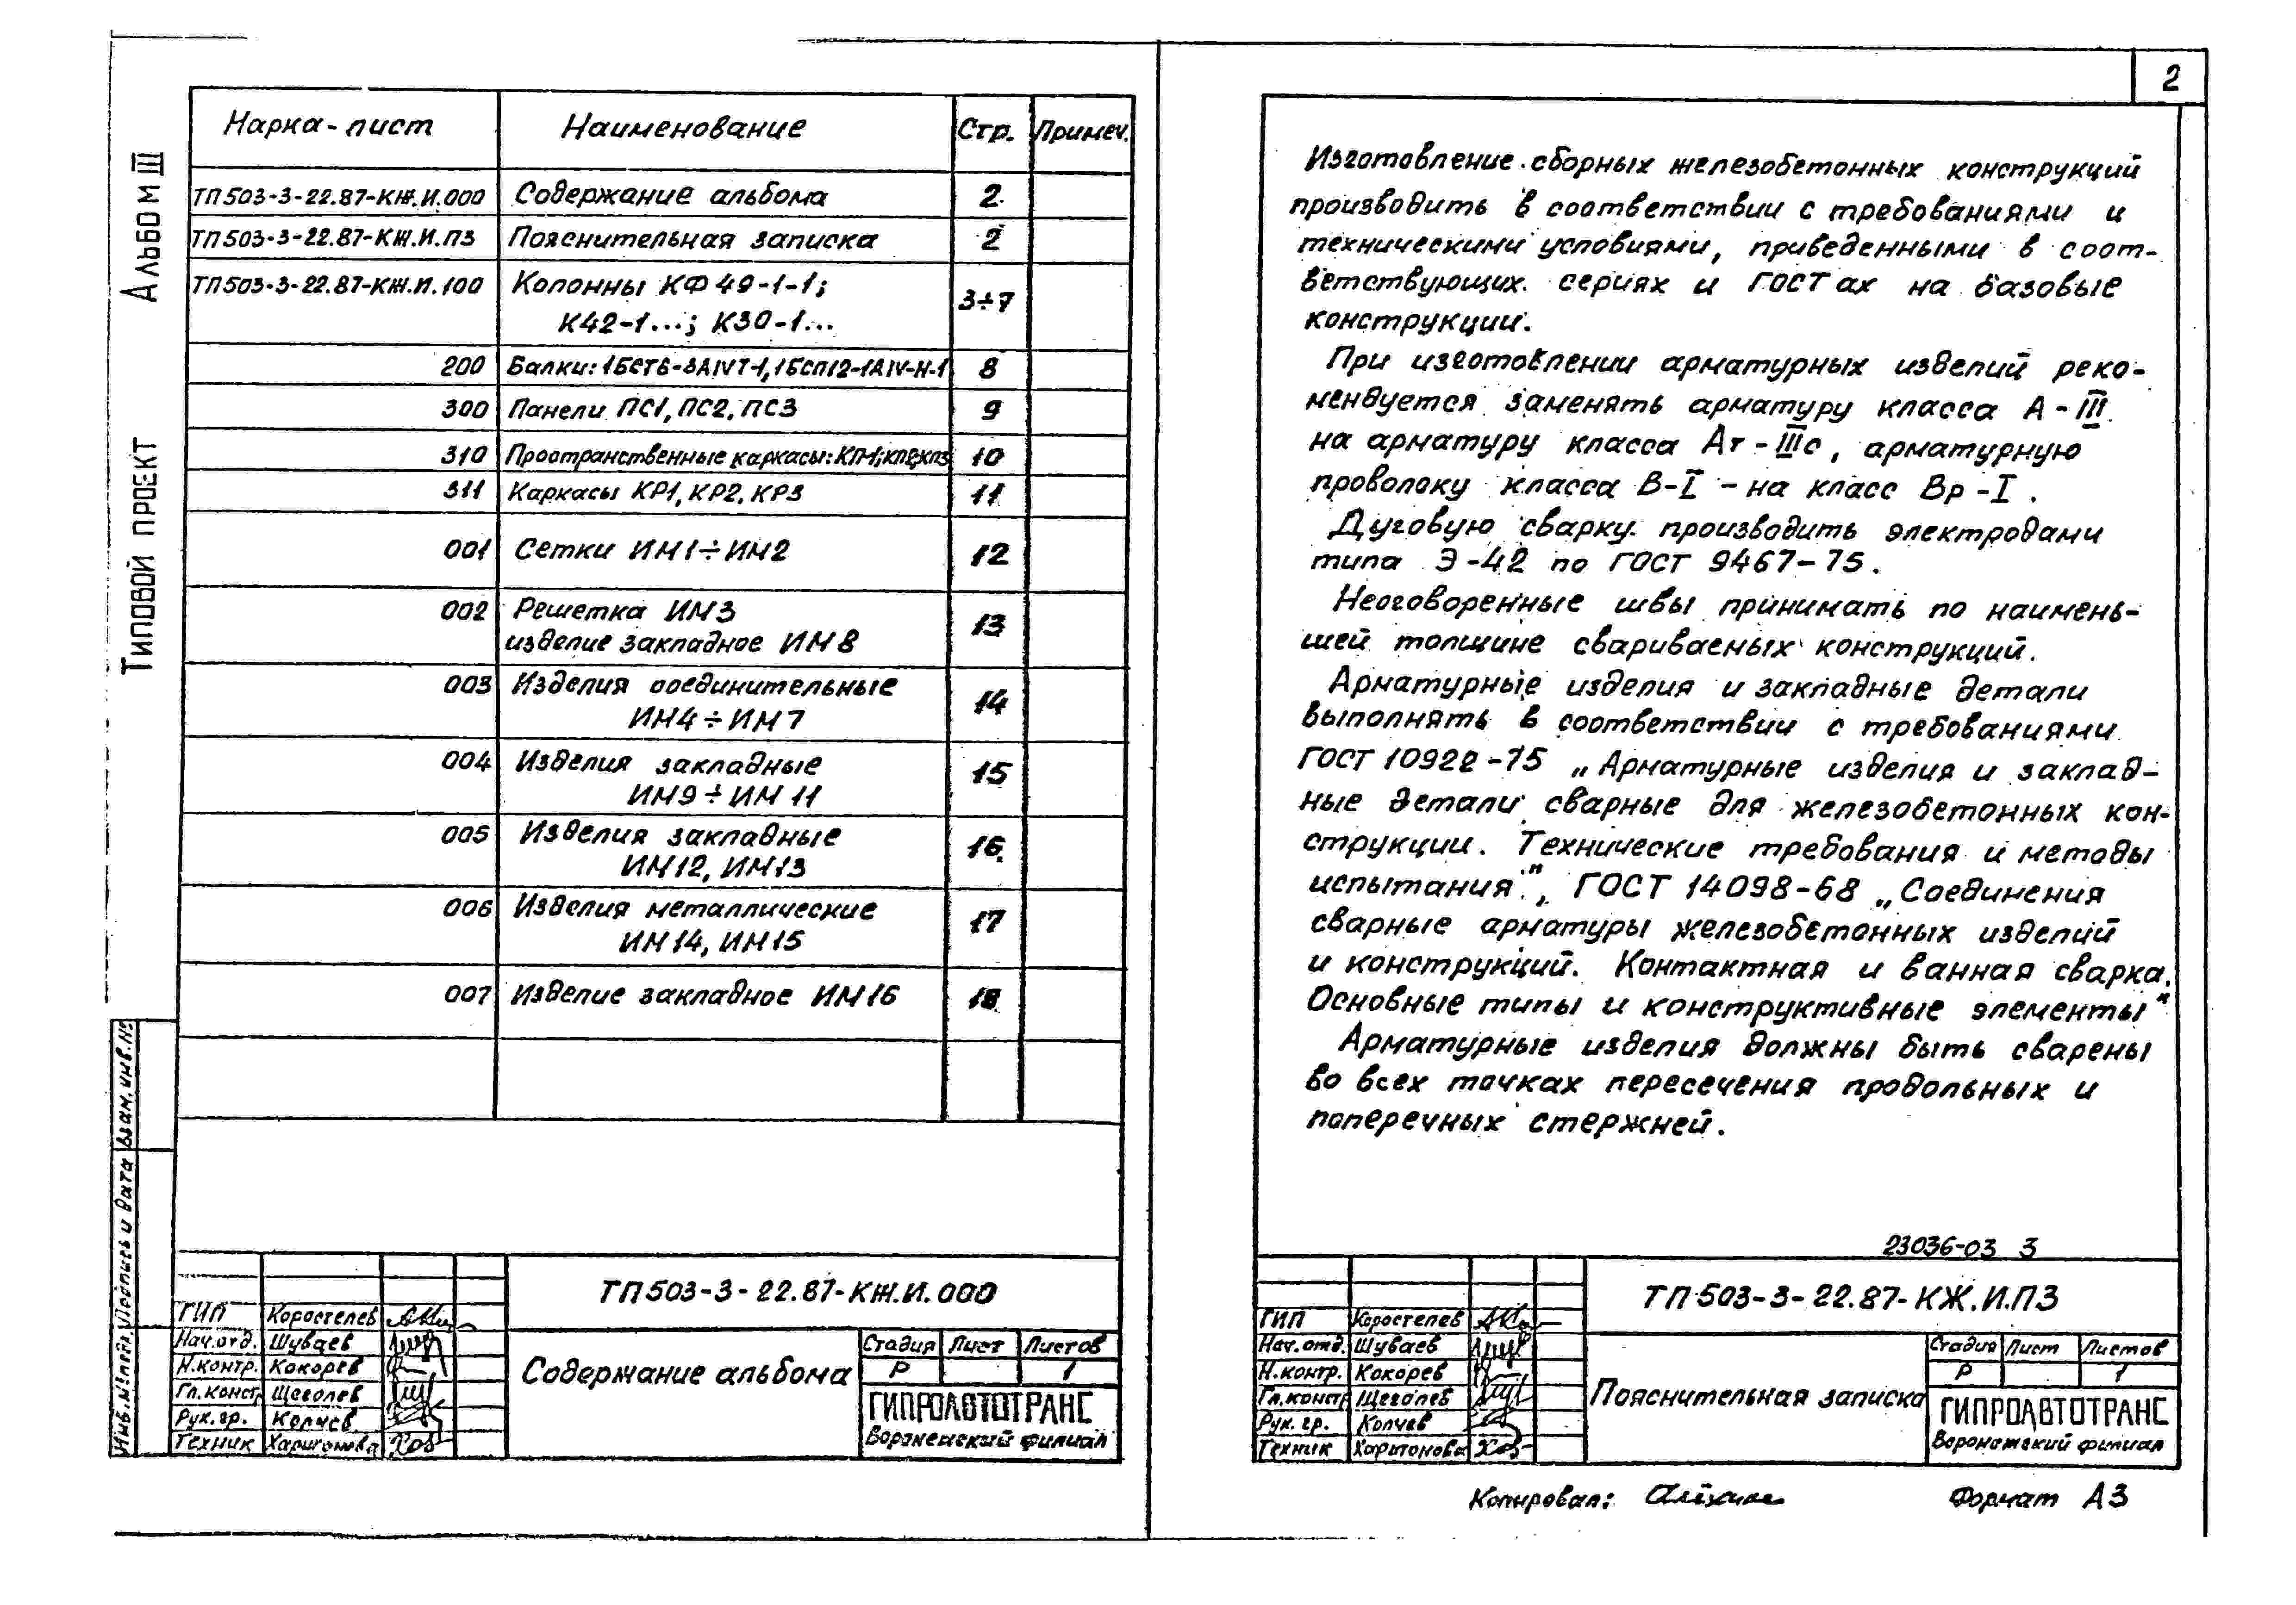 Альбом III
Типовой проект
Взам. инв. №
Подпись и дата
Инв. № подл.
Марка-лист Наименование Стр. Примеч.
ТП503-3-22.87-КЖ.И.000 Содержание альбома 2
ТП503-3-22.87-КЖ.И.ПЗ Пояснительная записка 2
ТП503-3-22.87-КЖ.И.100 Колонны КФ49-1-1; 3÷7
К42-1...; К30-1...
200 Балки: 1БСТ6-3АIVТ-1, 1БСП12-1АIV-Н-1 8
300 Панели ПС1, ПС2, ПС3 9
310 Пространственные каркасы: КП1; КП2; КП3 10
311 Каркасы КР1, КР2, КР3 11
001 Сетки ИМ1÷ИМ2 12
002 Решетка ИМ3 13
изделие закладное ИМ8
003 Изделия соединительные 14
ИМ4÷ИМ7
004 Изделия закладные 15
ИМ9÷ИМ11
005 Изделия закладные 16
ИМ12, ИМ13
006 Изделия металлические 17
ИМ14, ИМ15
007 Изделие закладное ИМ16 18
ТП503-3-22.87-КЖ.И.000
ГИП Коростелев
Нач.отд. Шуваев
Н.контр. Кокорев
Гл.констр Щеголев
Рук.гр. Колчев
Техник Харитонова
Содержание альбома
Стадия Лист Листов
Р 1
ГИПРОАВТОТРАНС
Воронежский филиал
2
Изготовление сборных железобетонных конструкций
производить в соответствии с требованиями и
техническими условиями, приведенными в соот-
ветствующих сериях и ГОСТах на базовые
конструкции.
При изготовлении арматурных изделий реко-
мендуется заменять арматуру класса А-III
на арматуру класса Ат-IIIс, арматурную
проволоку класса В-I - на класс Вр-I.
Дуговую сварку производить электродами
типа Э-42 по ГОСТ 9467-75.
Неоговоренные швы принимать по наимень-
шей толщине свариваемых конструкций.
Арматурные изделия и закладные детали
выполнять в соответствии с требованиями
ГОСТ 10922-75 „Арматурные изделия и заклад-
ные детали сварные для железобетонных кон-
струкции. Технические требования и методы
испытания.", ГОСТ 14098-68 „Соединения
сварные арматуры железобетонных изделий
и конструкций. Контактная и ванная сварка.
Основные типы и конструктивные элементы"
Арматурные изделия должны быть сварены
во всех точках пересечения продольных и
поперечных стержней.
23036-03 3
ТП503-3-22.87-КЖ.И.ПЗ
ГИП Коростелев
Нач.отд. Шуваев
Н.контр. Кокорев
Гл.констр Щеголев
Рук.гр. Колчев
Техник Харитонова
Пояснительная записка
Стадия Лист Листов
Р 1
ГИПРОАВТОТРАНС
Воронежский филиал
Копировал: Формат А3